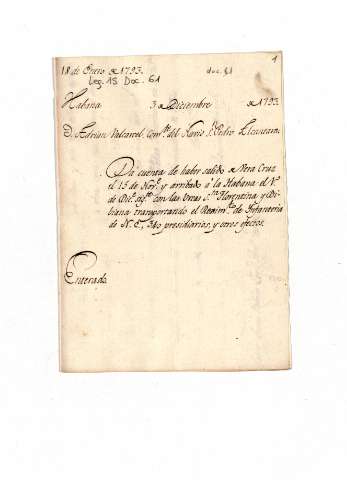 4
18 de Enero de 1793.
doc. 61
Leg. 18 Doc. 61
Habana 3 de Diciembre de 1793
D. Adrian Valcarcel, Com.te del Navio S. Pedro Alcantara.
Da cuenta de haber salido de Vera Cruz
el 15 de Nov.e y arribado à la Habana el 1.º
de Dic.e sig.te con las Urcas S.ta Florentina y Bi-
biana transportando el Regim.to de Infanteria
de N. E., 340 presidiarios, y otros efectos.
Enterado.